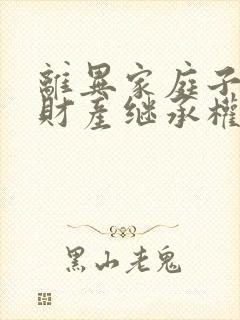 離異家庭子
財產继承權
黑山老鬼